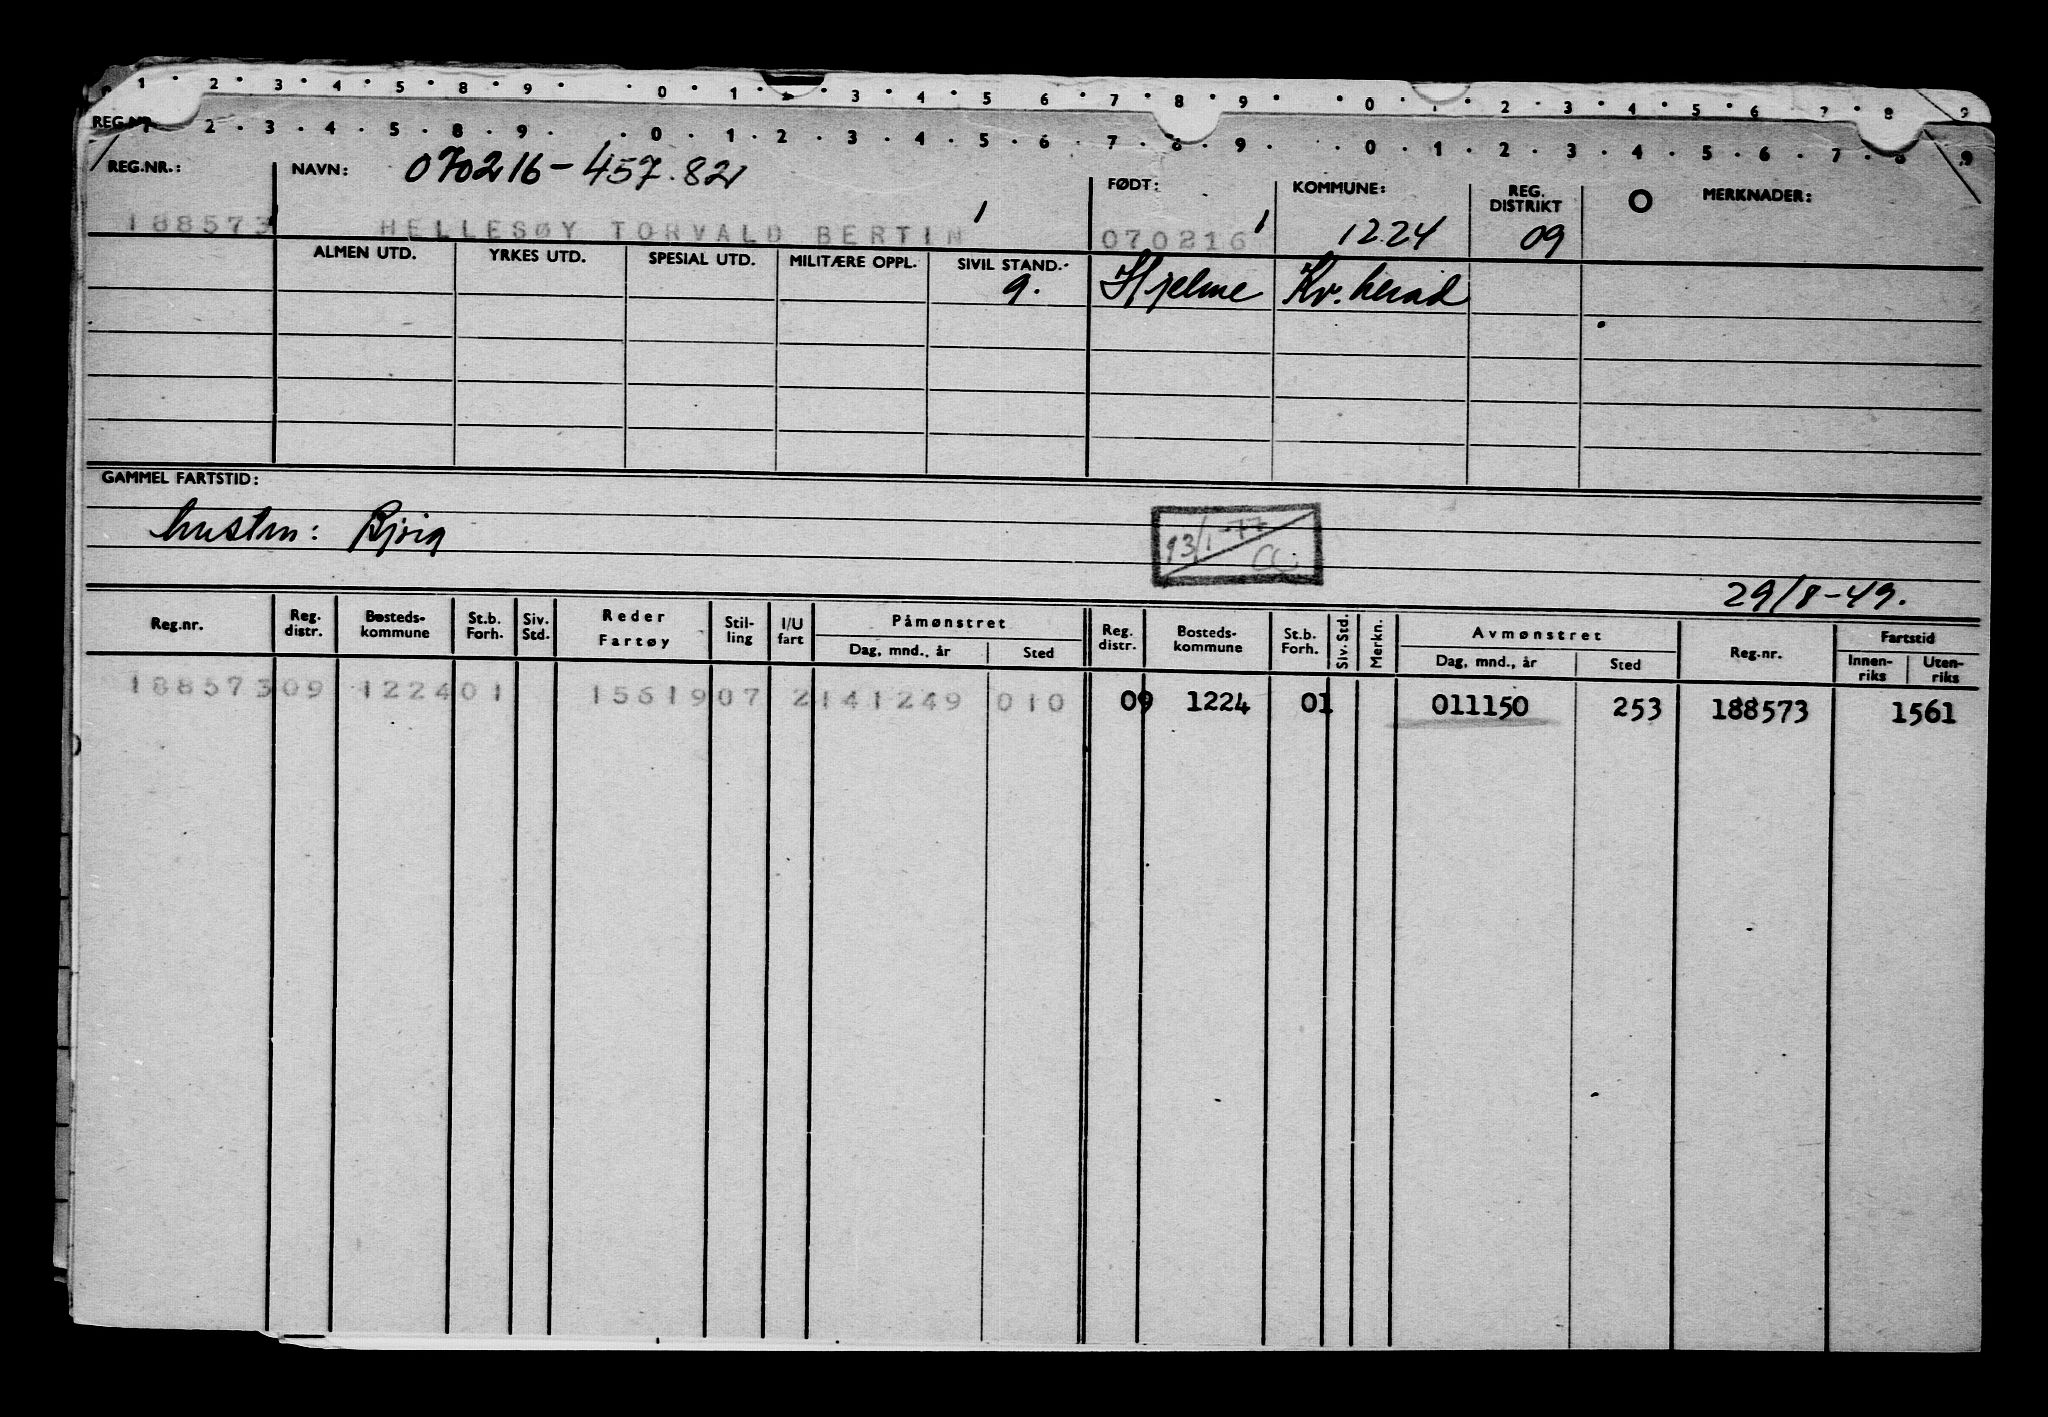 1 2 3 4 5 8 9 0 1 2 3 4 5 6 7 8 9 0 1 2 3 4 5 6 7 8 9
REG.NR.
1 2 3 4 5 8 9 0 1 2 3 4 5 6 7 8 9 0 1 2 3 4 5 6 7 8 9
REG.NR.: NAVN: 070216-457.82 FØDT: KOMMUNE: REG. DISTRIKT O MERKNADER:
188573 HELLESØY TORVALD BERTIN 070216 1224 09
ALMEN UTD. YRKES UTD. SPESIAL UTD. MILITÆRE OPPL. SIVIL STAND.
g. Hjelme Kv.herad
GAMMEL FARTSTID:
hustru:
13/1-77
29/8-49.
Reg.nr. Reg. distr. Bosteds-kommune St.b. Forh. Siv. Std. Reder Fartøy Stil-ling I/U fart Påmønstret Dag, mnd., år Sted Reg. distr. Bosteds-kommune St.b. Forh. Siv. Std. Merkn. Avmønstret Dag, mnd., år Sted Reg.nr. Fartstid Innen-riks Uten-riks
188573 09 1224 01 15619 07 2 141249 010 09 1224 01 011150 253 188573 1561